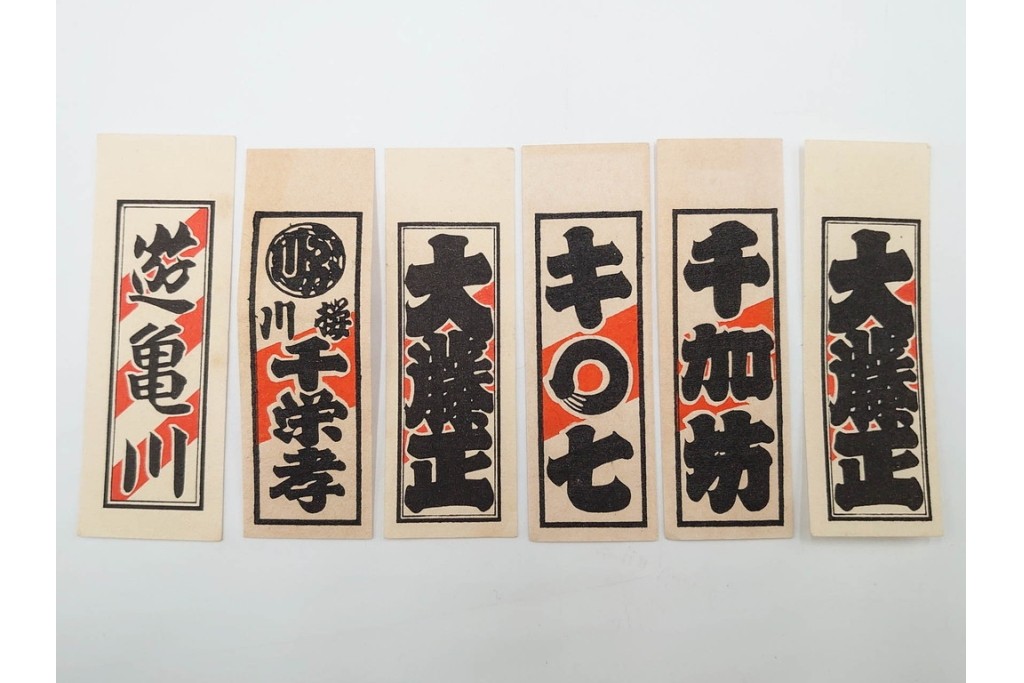 遊亀川
川
千栄孝
大藤正
キ〇七
千加坊
大藤正